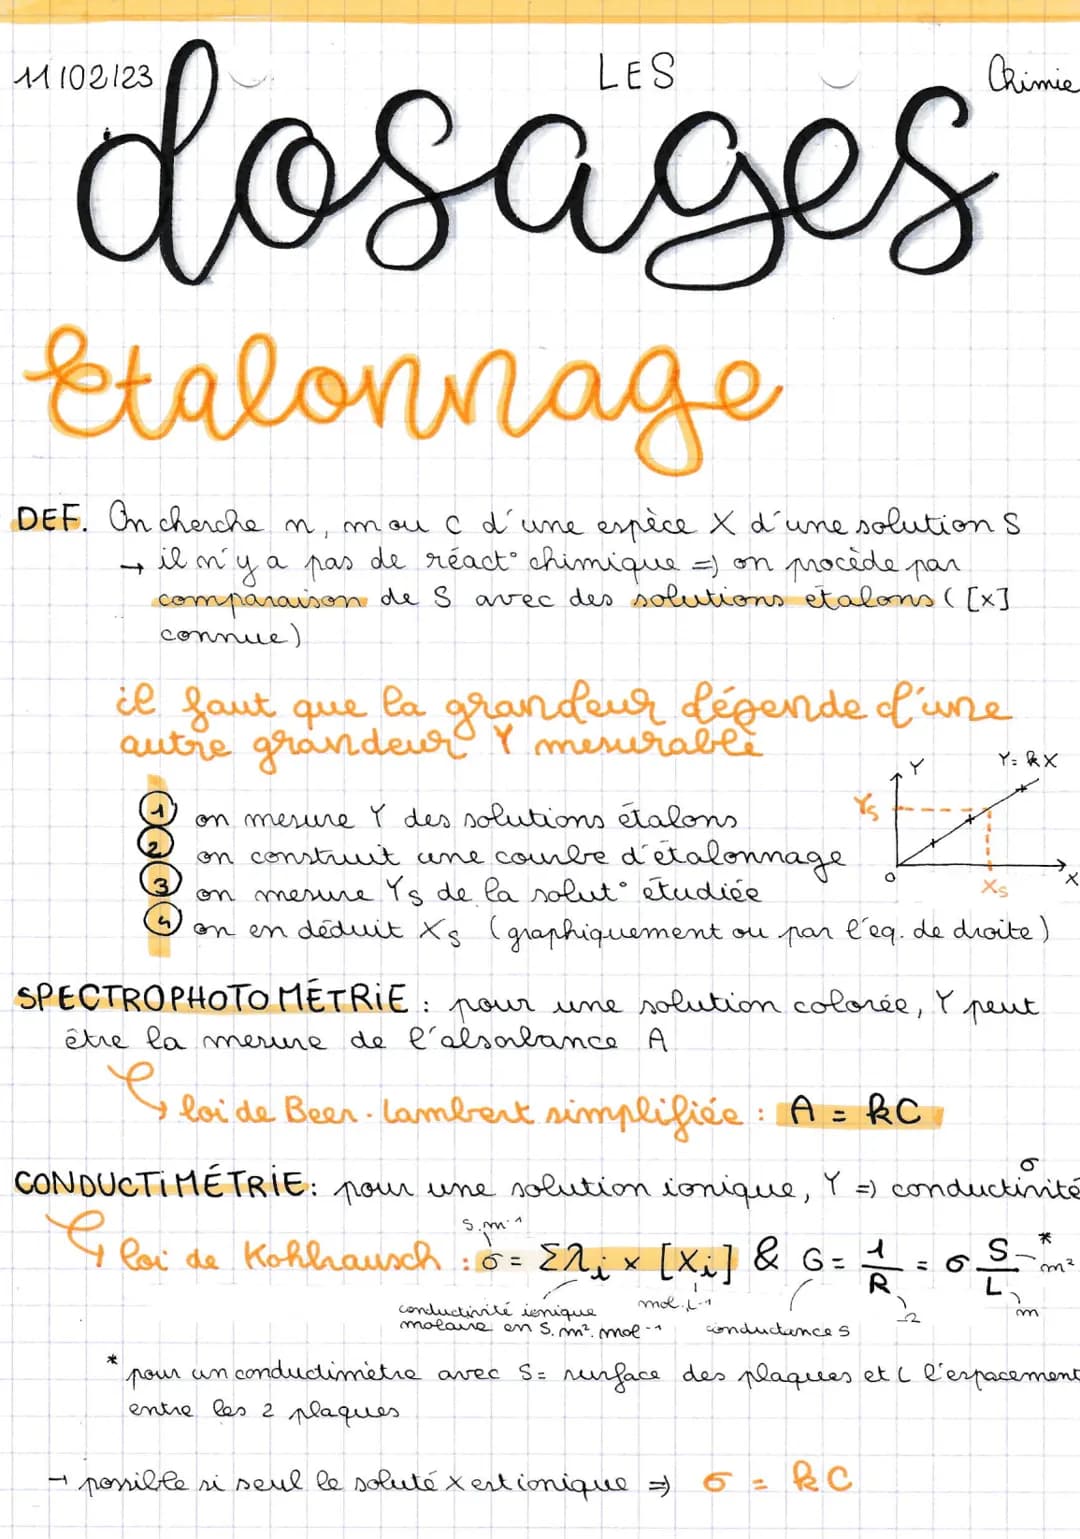 11/02/23
LES
Chimie
dosages
Etalonnage
DEF. On cherche n, m ou c d'une espèce X d'une solution S
→ il n'y a pas de réact° chimique => on procède par
comparaison de S avec des solutions étalons ([X]
connue)
il faut que la grandeur dépende d'une
autre grandeur Y mesurable
Y
Y = kX
Ys
0
Xs
X
1 on mesure Y des solutions étalons
2 on construit une courbe d'étalonnage
3 on mesure Ys de la solut° étudiée
4 on en déduit Xs (graphiquement ou par l'eq. de droite)
SPECTROPHOTOMÉTRIE : pour une solution colorée, Y peut
être la mesure de l'absorbance A
loi de Beer-Lambert simplifiée : A = kC
CONDUCTIMÉTRIE : pour une solution ionique, Y => conductivité σ
S.m⁻¹
loi de Kohlrausch : σ = Σλi × [Xi] & G = 1/R = σ S/L *
m²
m
Ω
conductivité ionique
molaire en S.m².mol⁻¹
mol.L⁻¹
conductance S
* pour un conductimètre avec S = surface des plaques et L l'espacement
entre les 2 plaques
→ possible si seul le soluté X est ionique => σ = kC